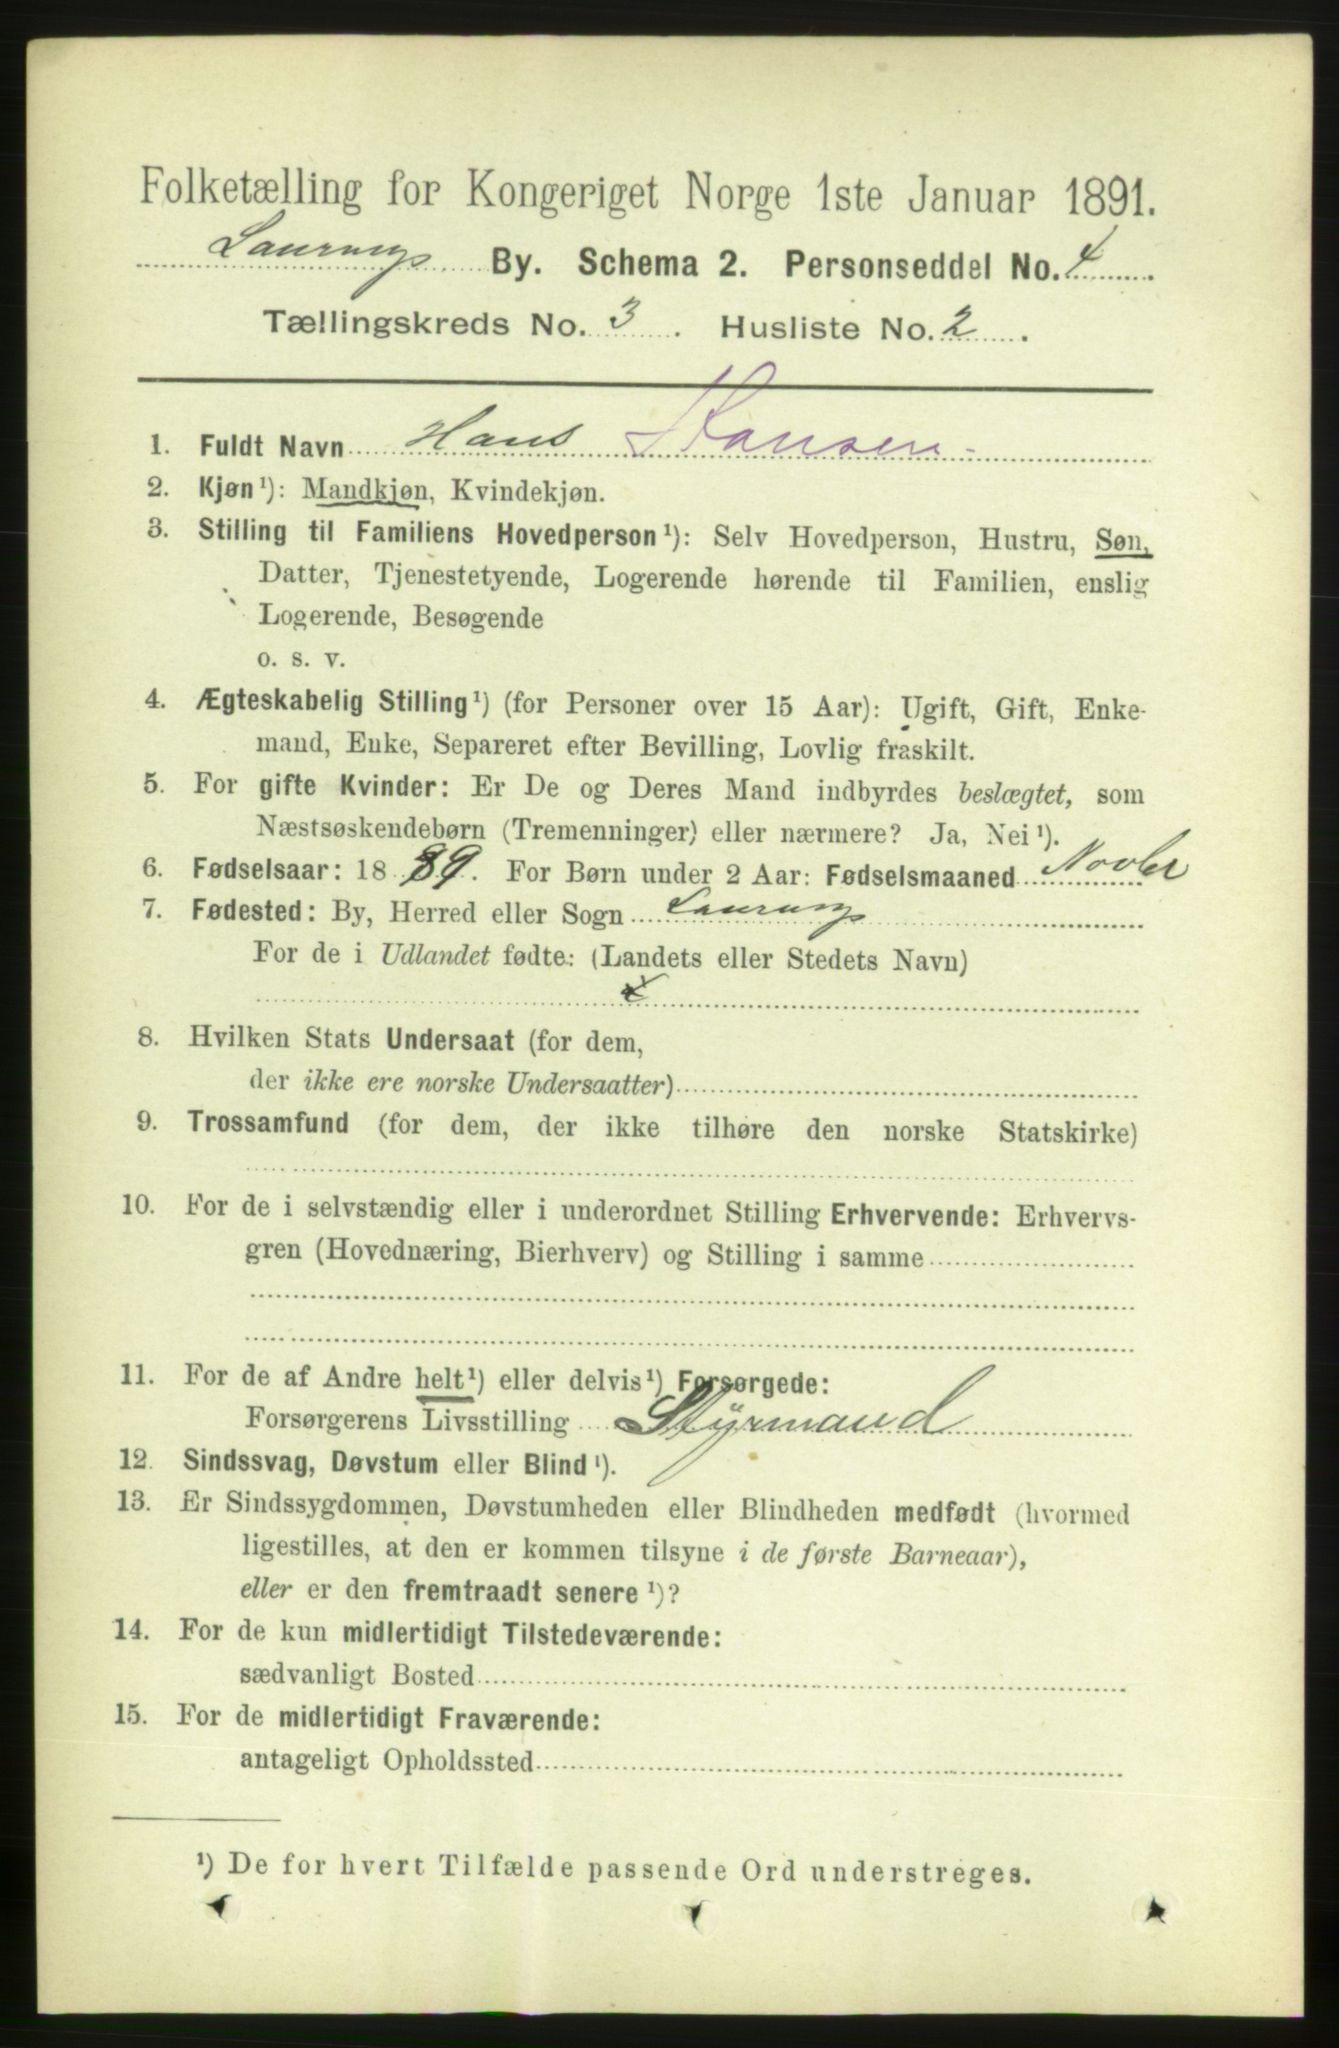 Folketælling for Kongeriget Norge 1ste Januar 1891.
Laurvigs By. Schema 2. Personseddel No. 4.
Tællingskreds No. 3. Husliste No. 2.
1. Fuldt Navn Hans Hansen
2. Kjøn¹): Mandkjøn, Kvindekjøn.
3. Stilling til Familiens Hovedperson¹): Selv Hovedperson, Hustru, Søn,
Datter, Tjenestetyende, Logerende hørende til Familien, enslig
Logerende, Besøgende
o. s. v.
4. Ægteskabelig Stilling¹) (for Personer over 15 Aar): Ugift, Gift, Enke-
mand, Enke, Separeret efter Bevilling, Lovlig fraskilt.
5. For gifte Kvinder: Er De og Deres Mand indbyrdes beslægtet, som
Næstsøskendebørn (Tremenninger) eller nærmere? Ja, Nei¹).
6. Fødselsaar: 1889. For Børn under 2 Aar: Fødselsmaaned Novber
7. Fødested: By, Herred eller Sogn Laurvig
For de i Udlandet fødte: (Landets eller Stedets Navn)
8. Hvilken Stats Undersaat (for dem,
der ikke ere norske Undersaatter)
9. Trossamfund (for dem, der ikke tilhøre den norske Statskirke)
10. For de i selvstændig eller i underordnet Stilling Erhvervende: Erhvervs-
gren (Hovednæring, Bierhverv) og Stilling i samme
11. For de af Andre helt¹) eller delvis¹) Forsørgede:
Forsørgerens Livsstilling Styrmand
12. Sindssvag, Døvstum eller Blind¹).
13. Er Sindssygdommen, Døvstumheden eller Blindheden medfødt (hvormed
ligestilles, at den er kommen tilsyne i de første Barneaar),
eller er den fremtraadt senere¹)?
14. For de kun midlertidigt Tilstedeværende:
sædvanligt Bosted
15. For de midlertidigt Fraværende:
antageligt Opholdssted
¹) De for hvert Tilfælde passende Ord understreges.